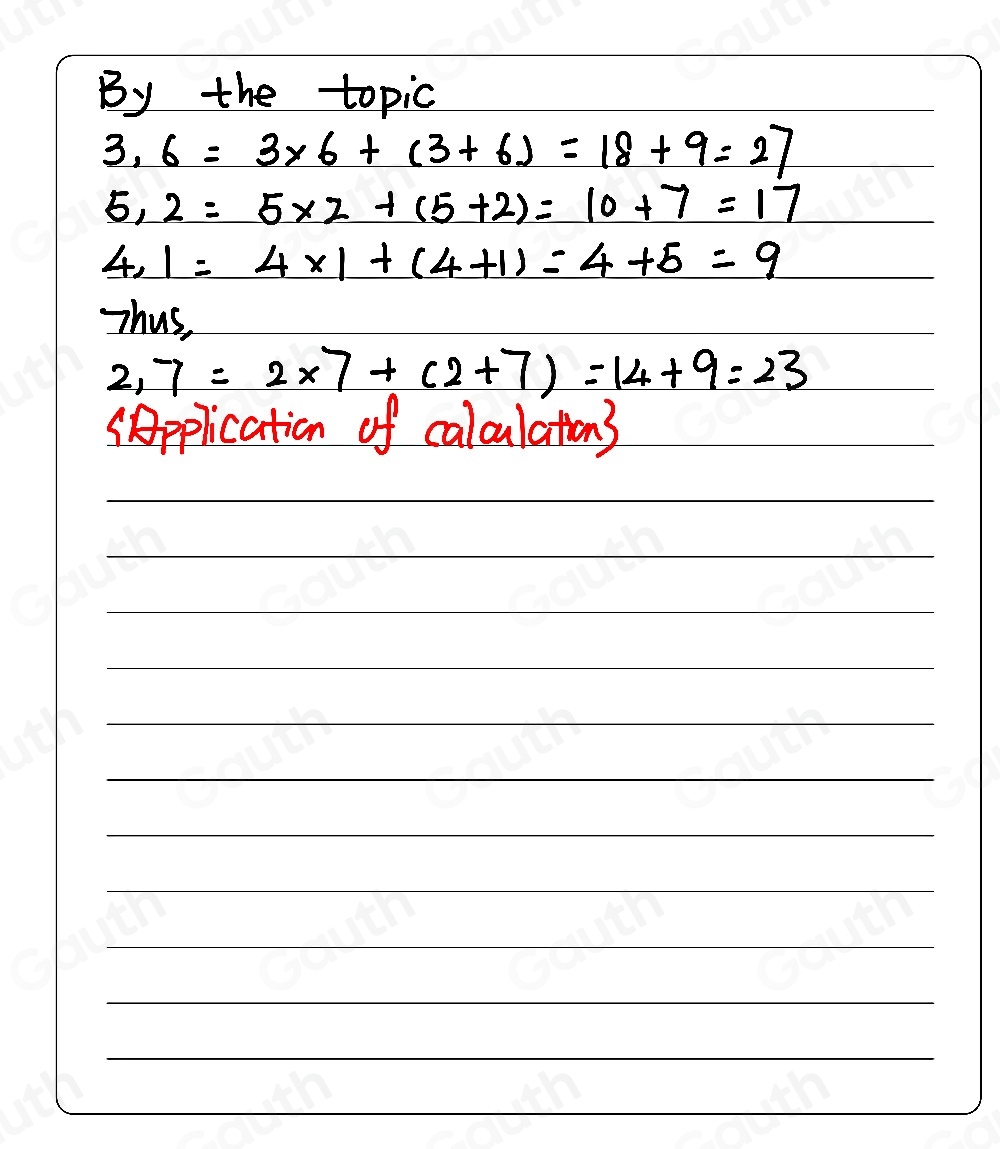 By the topic
3, 6 = 3×6 + (3+6) = 18 + 9 = 27
5, 2 = 5×2 + (5+2) = 10 + 7 = 17
4, 1 = 4×1 + (4+1) = 4 + 5 = 9
Thus,
2, 7 = 2×7 + (2+7) = 14 + 9 = 23
{Application of calculation}